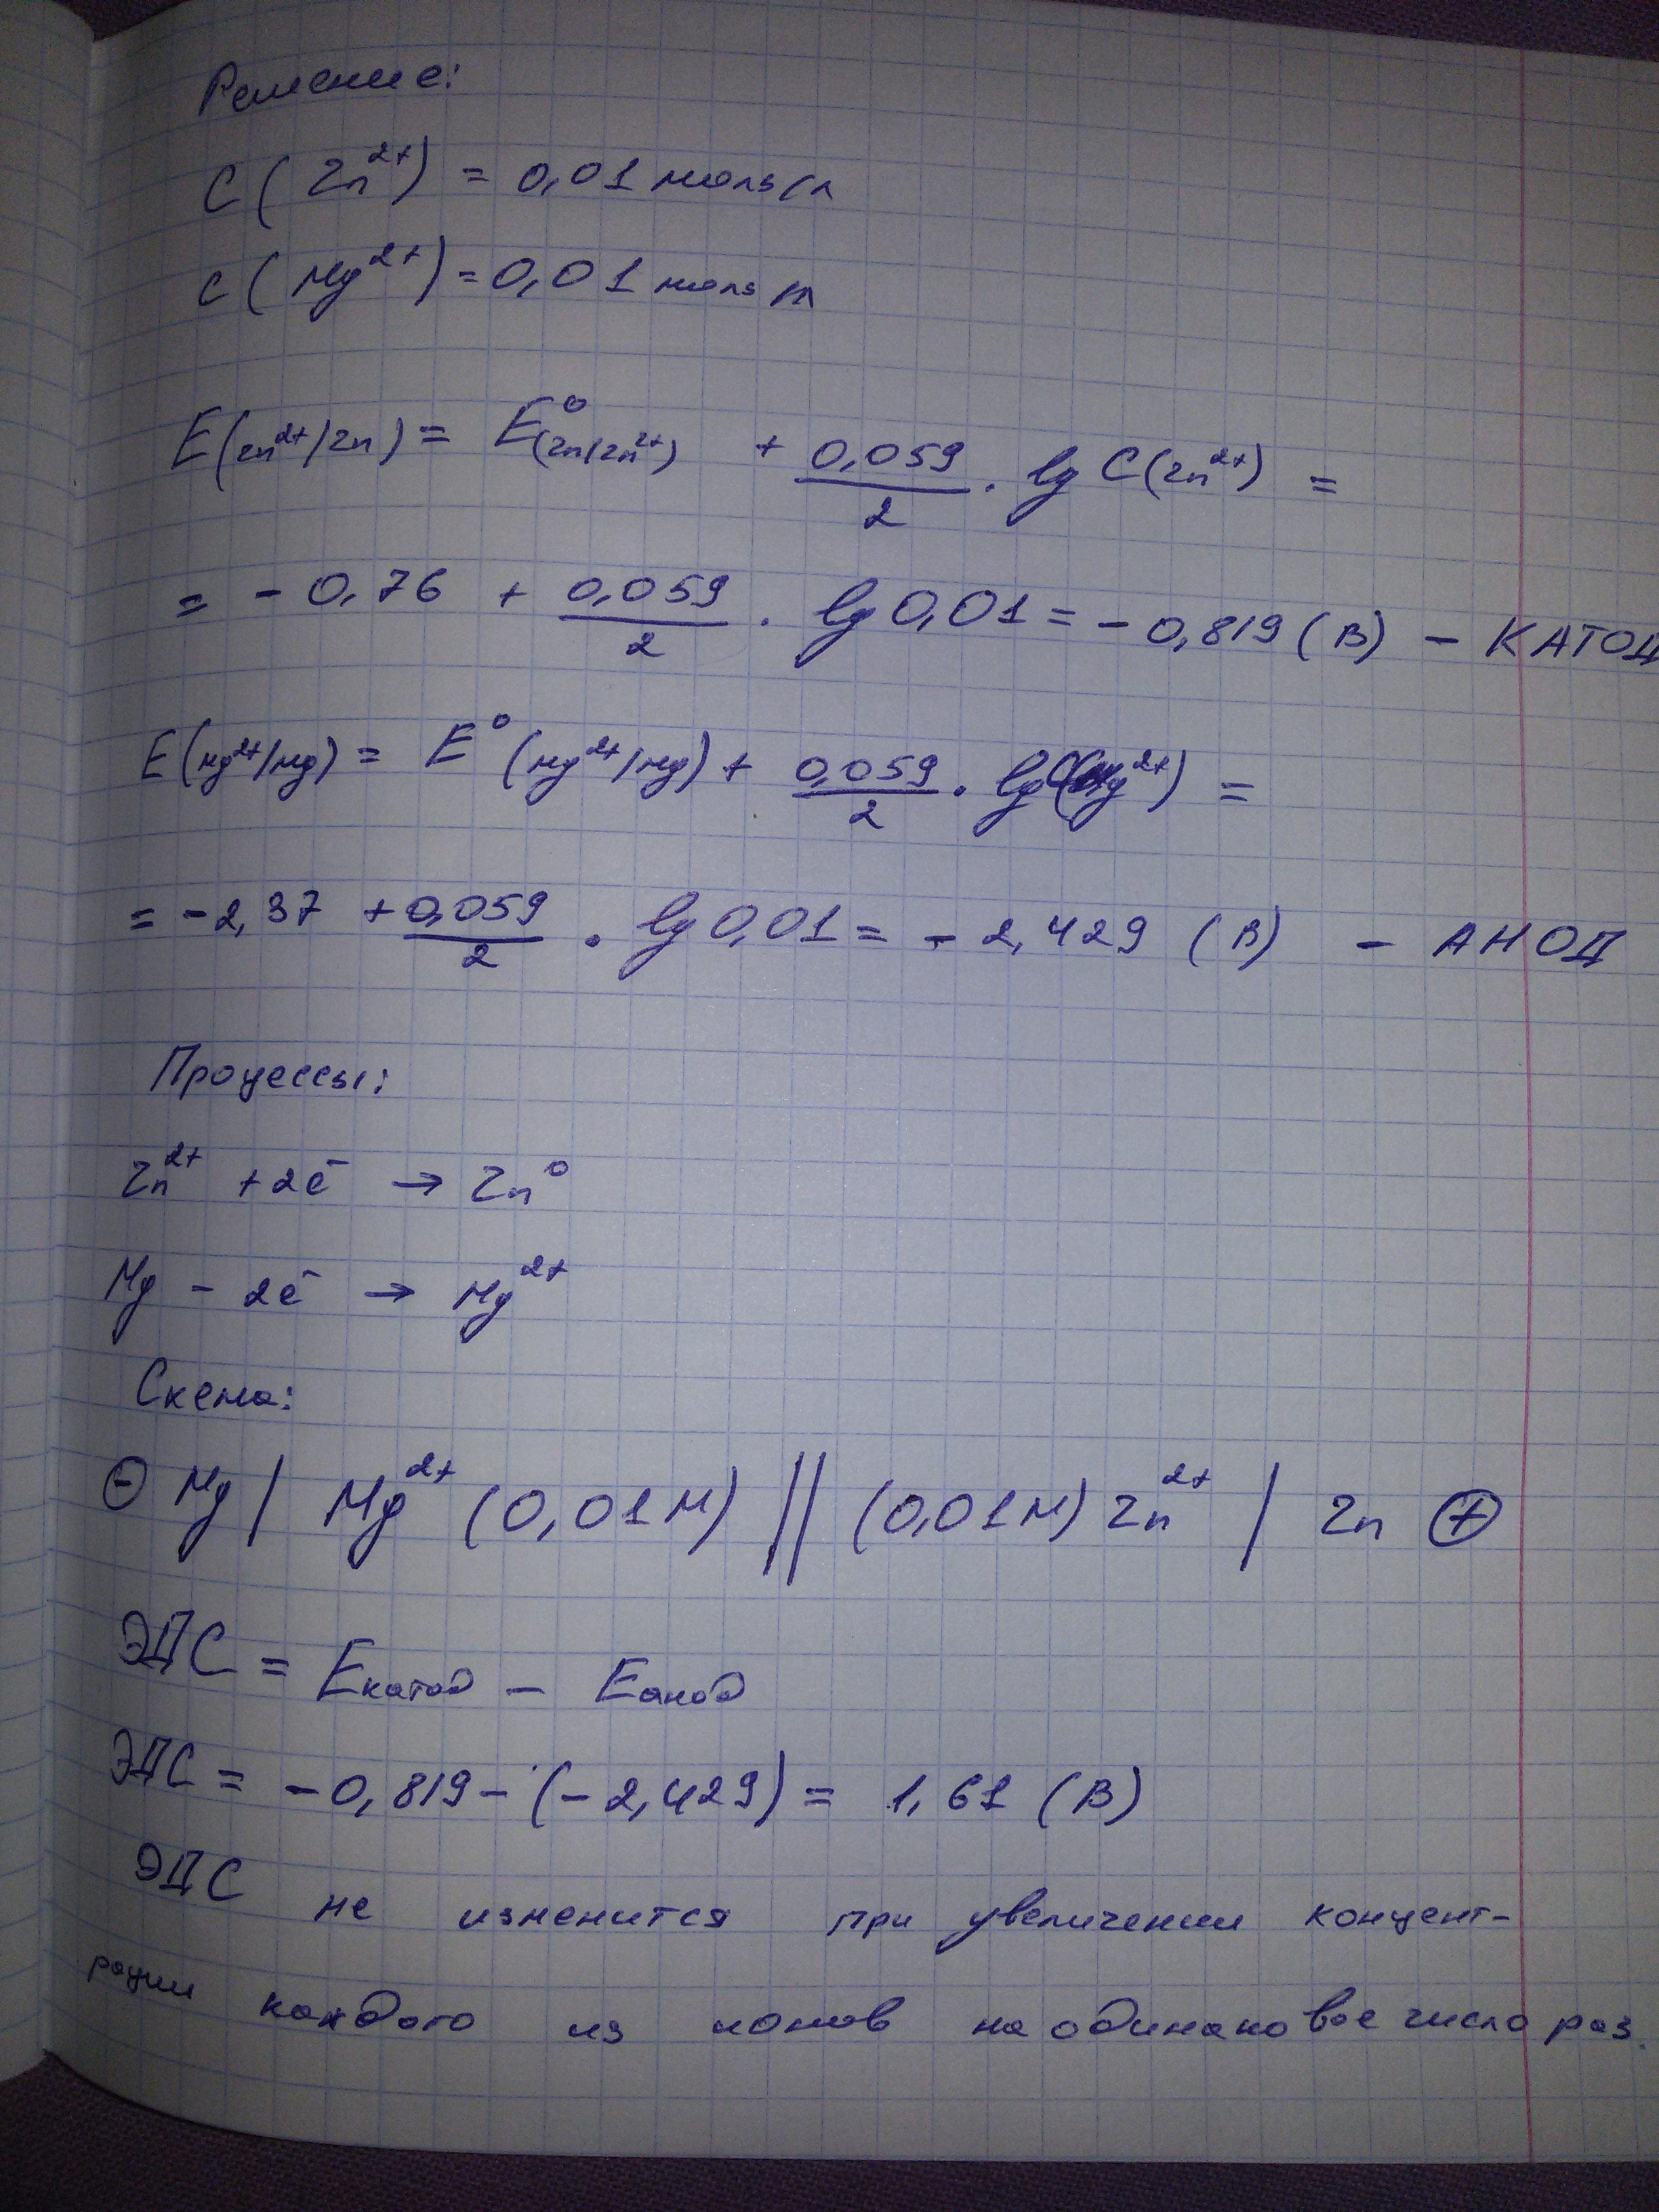 Решение:
C(Zn²⁺) = 0,01 моль/л
c(Mg²⁺) = 0,01 моль/л
E(Zn²⁺/Zn) = E⁰(Zn/Zn²⁺) + 0,059/2 · lg C(Zn²⁺) =
= -0,76 + 0,059/2 · lg 0,01 = -0,819 (В) - КАТОД
E(Mg²⁺/Mg) = E⁰(Mg²⁺/Mg) + 0,059/2 · lg (Mg²⁺) =
= -2,37 + 0,059/2 · lg 0,01 = -2,429 (В) - АНОД
Процессы:
Zn²⁺ + 2ē → Zn⁰
Mg - 2ē → Mg²⁺
Схема:
⊖ Mg | Mg²⁺ (0,01М) || (0,01М) Zn²⁺ | Zn ⊕
ЭДС = Eкатод - Eанод
ЭДС = -0,819 - (-2,429) = 1,61 (В)
ЭДС не изменится при увеличении концент-
рации каждого из ионов на одинаковое число раз.